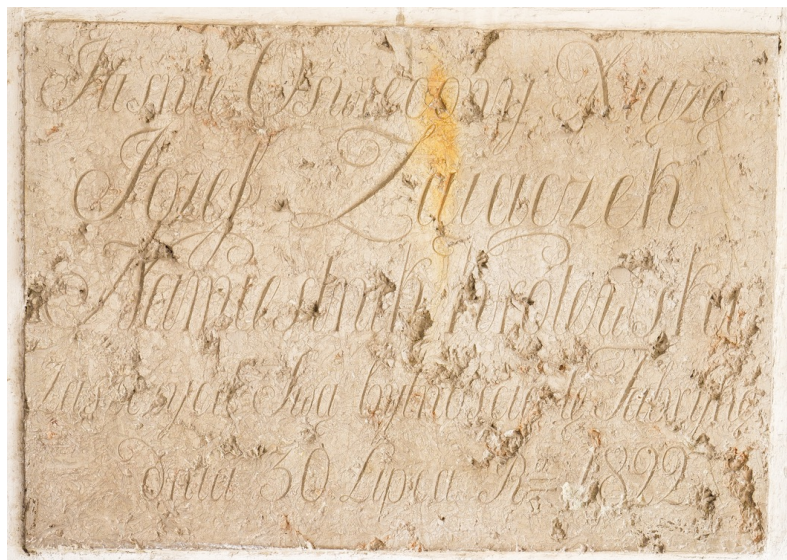 Jasnie Oswiecony Xiąze
Jozef Zaiaczek
Namiestnik Krolewski
Zaszczycił Swą bytnoscią tę Fabrykę
dnia 30 Lipca Ru 1822